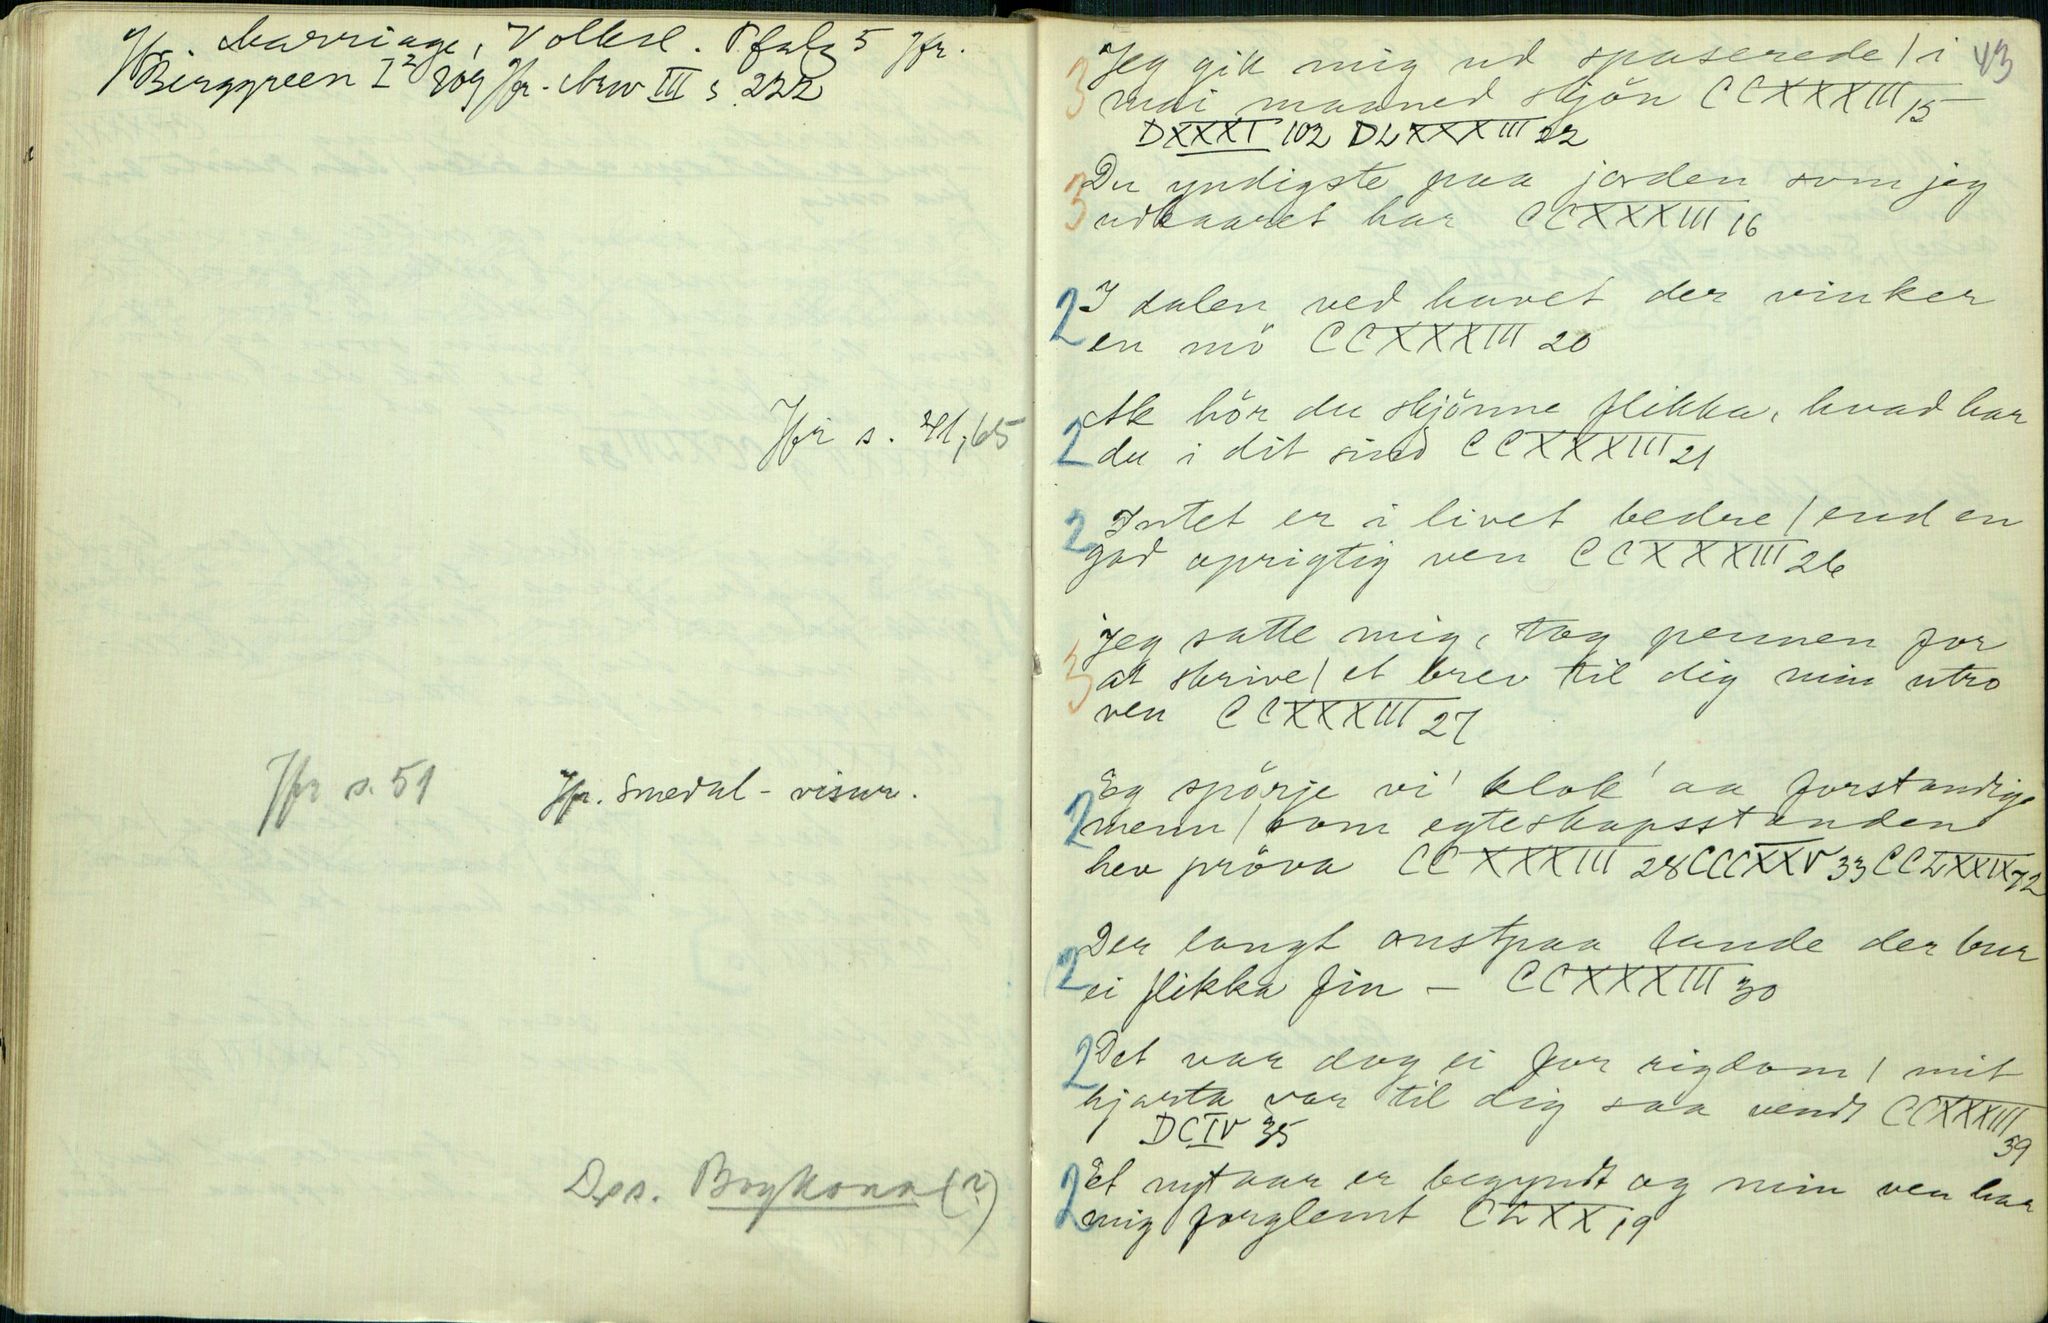 Jfr. Marriage, Volksl. Pfalz 5 Jfr.
Berggreen I² 209 Jfr. Arw III s. 222
Jfr s. 41, 65
Jfr s. 51
Jfr. Smedal-visur.
Dss. Bogkona (?)
43
3 Jeg gik mig ud spaserede / i
mai maaned skjön CCXXXIII 15
DXXXI 102 DLXXXIII 22
3 Du yndigste paa jorden som jeg
udkaaret har CCXXXIII 16
2 I dalen ved havet der vinker
en mö CCXXXIII 20
2 Ak hör du skjönne flikka, hvad har
du i dit sind CCXXXIII 21
2 Intet er i livet bedre / end en
god oprigtig ven CCXXXIII 26
3 Jeg satte mig, tog pennen for
at skrive / et brev til dig min utro
ven CCXXXIII 27
2 Eg spörje vi' klok' aa forstandige
menn / som egteskapsstanden
hev pröva CCXXXIII 28 CCCXXV 33 CCLXXIX 72
2 Der langt austpaa lande der bur
ei flikka fin – CCXXXIII 30
2 Det var dog ei for rigdom / mit
hjarta var til dig saa vendt CCXXXIII
39
DCIV 35
2 Et nyt aar er begyndt og min ven har
mig forglemt CLXX 19